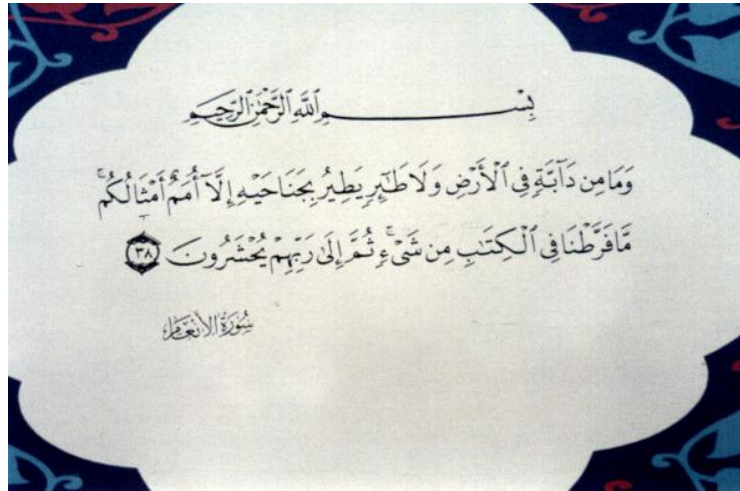 بِسْمِ ٱللَّهِ ٱلرَّحْمَٰنِ ٱلرَّحِيمِ
وَمَا مِن دَآبَّةٍ فِى ٱلْأَرْضِ وَلَا طَٰٓئِرٍ يَطِيرُ بِجَنَاحَيْهِ إِلَّآ أُمَمٌ أَمْثَالُكُم ۚ
مَّا فَرَّطْنَا فِى ٱلْكِتَٰبِ مِن شَىْءٍ ۚ ثُمَّ إِلَىٰ رَبِّهِمْ يُحْشَرُونَ ٣٨
سُورَةُ الأَنْعَام